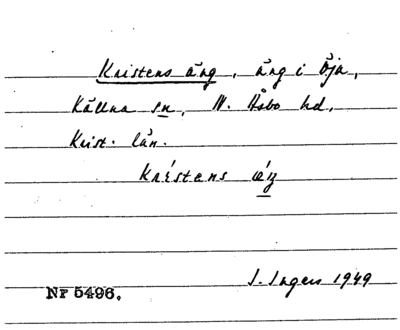 Kristens äng, äng i Öja,
Källna sn, N. Åsbo hd,
Krist. län.
Kristens
I. Ingers 1949
Nr 5496.